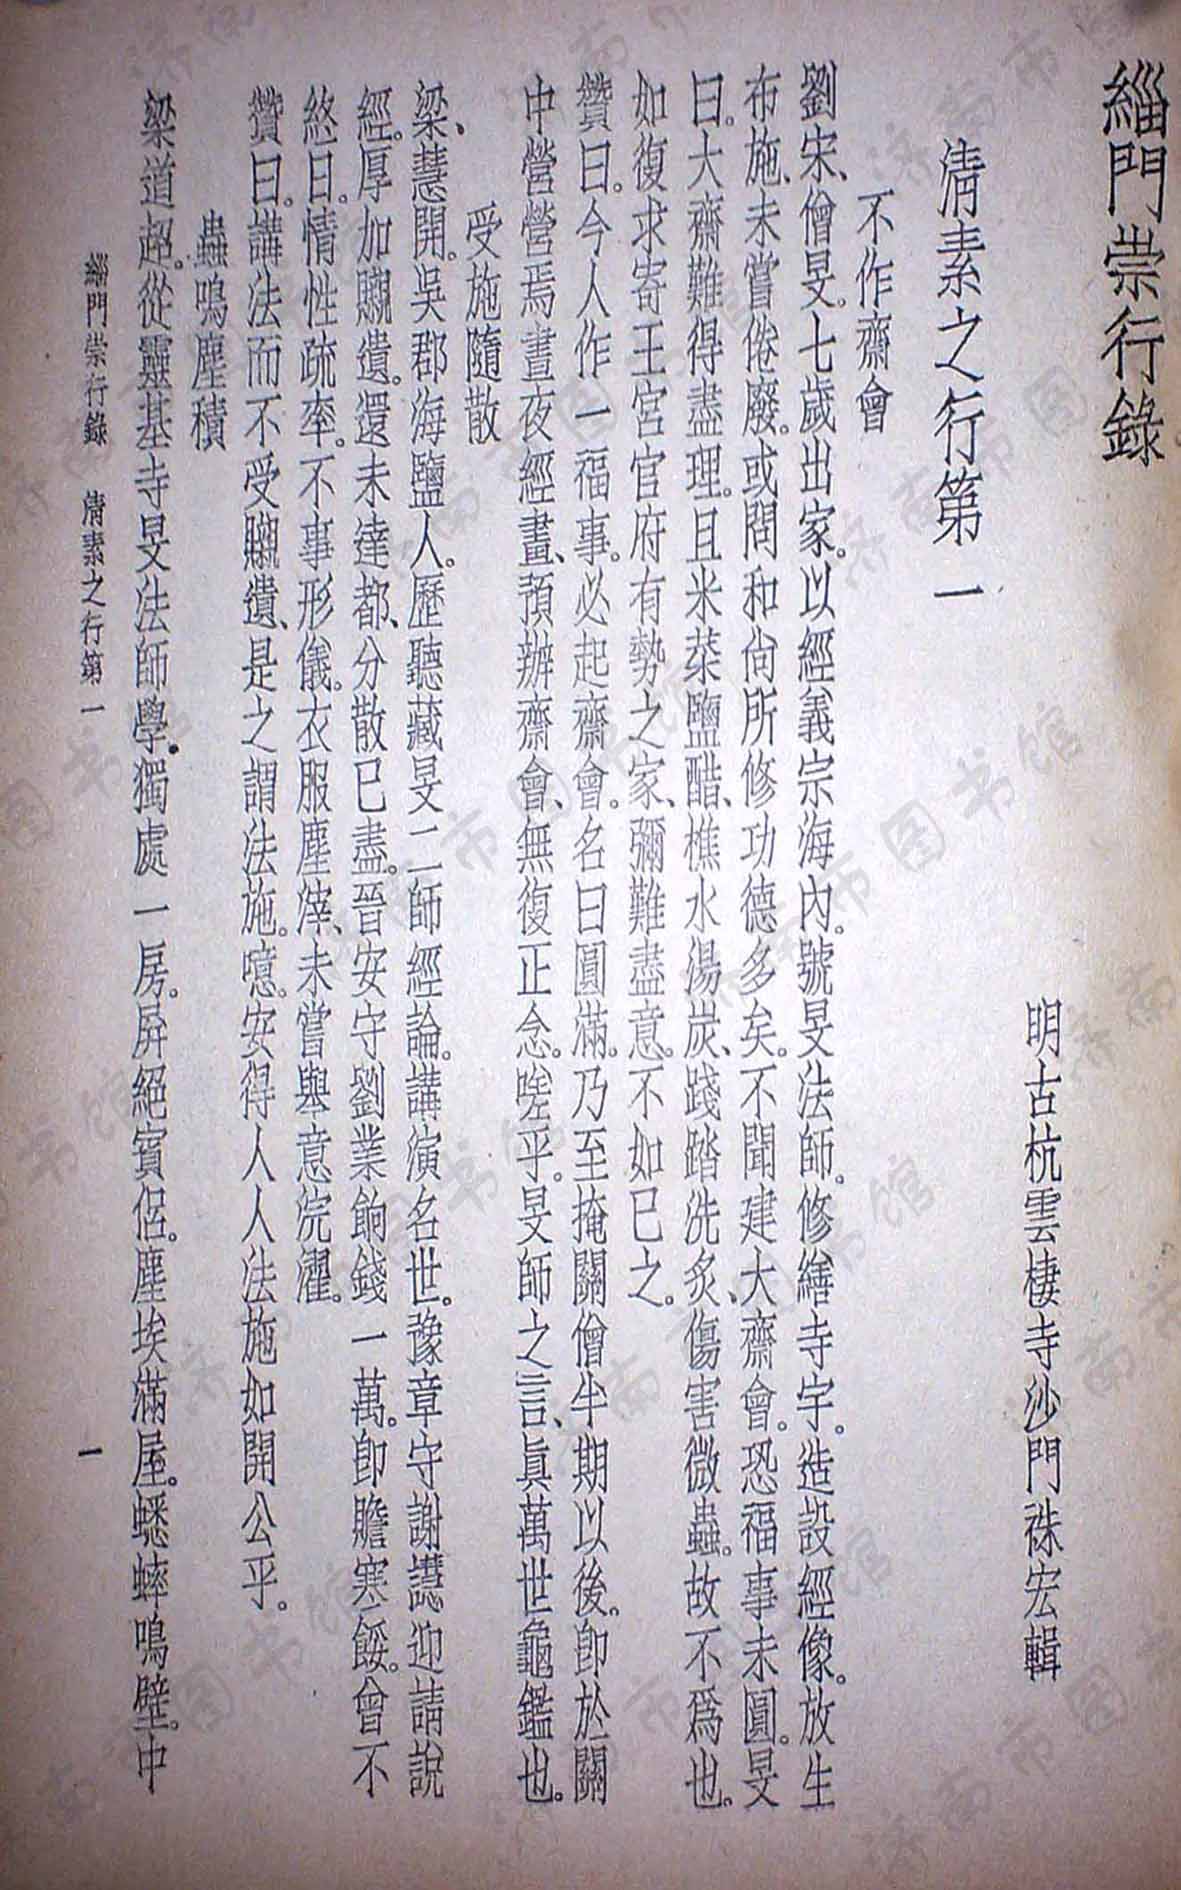 緇門崇行錄
明古杭雲棲寺沙門袾宏輯
清素之行第一
不作齋會
劉宋、僧旻。七歲出家。以經義宗海內。號旻法師。修繕寺宇。造設經像。放生
布施、未嘗倦廢。或問和尙所修功德多矣。不聞建大齋會。恐福事未圓。旻
曰。大齋難得盡理。且米菜鹽醋、樵水湯炭、踐踏洗炙、傷害微蟲。故不爲也。
如復求寄王宮官府有勢之家、彌難盡意。不如已之。
贊曰。今人作一福事。必起齋會。名曰圓滿。乃至掩關僧半期以後。卽於關
中營營焉晝夜經畫、預辦齋會、無復正念。嗟乎。旻師之言、眞萬世龜鑑也。
受施隨散
梁、慧開。吳郡海鹽人。歷聽藏旻二師經論。講演名世。豫章守謝譓迎請說
經。厚加䞋遺。還未達都、分散已盡。晉安守劉業餉錢一萬。卽贍寒餒。曾不
終日。情性疏率。不事形儀。衣服塵滓、未嘗舉意浣濯。
贊曰。講法而不受䞋遺、是之謂法施。噫。安得人人法施如開公乎。
蟲鳴塵積
梁道超。從靈基寺旻法師學。獨處一房。屛絕賓侶。塵埃滿屋。蟋蟀鳴壁。中
緇門崇行錄 清素之行第一 一
济南市图书馆